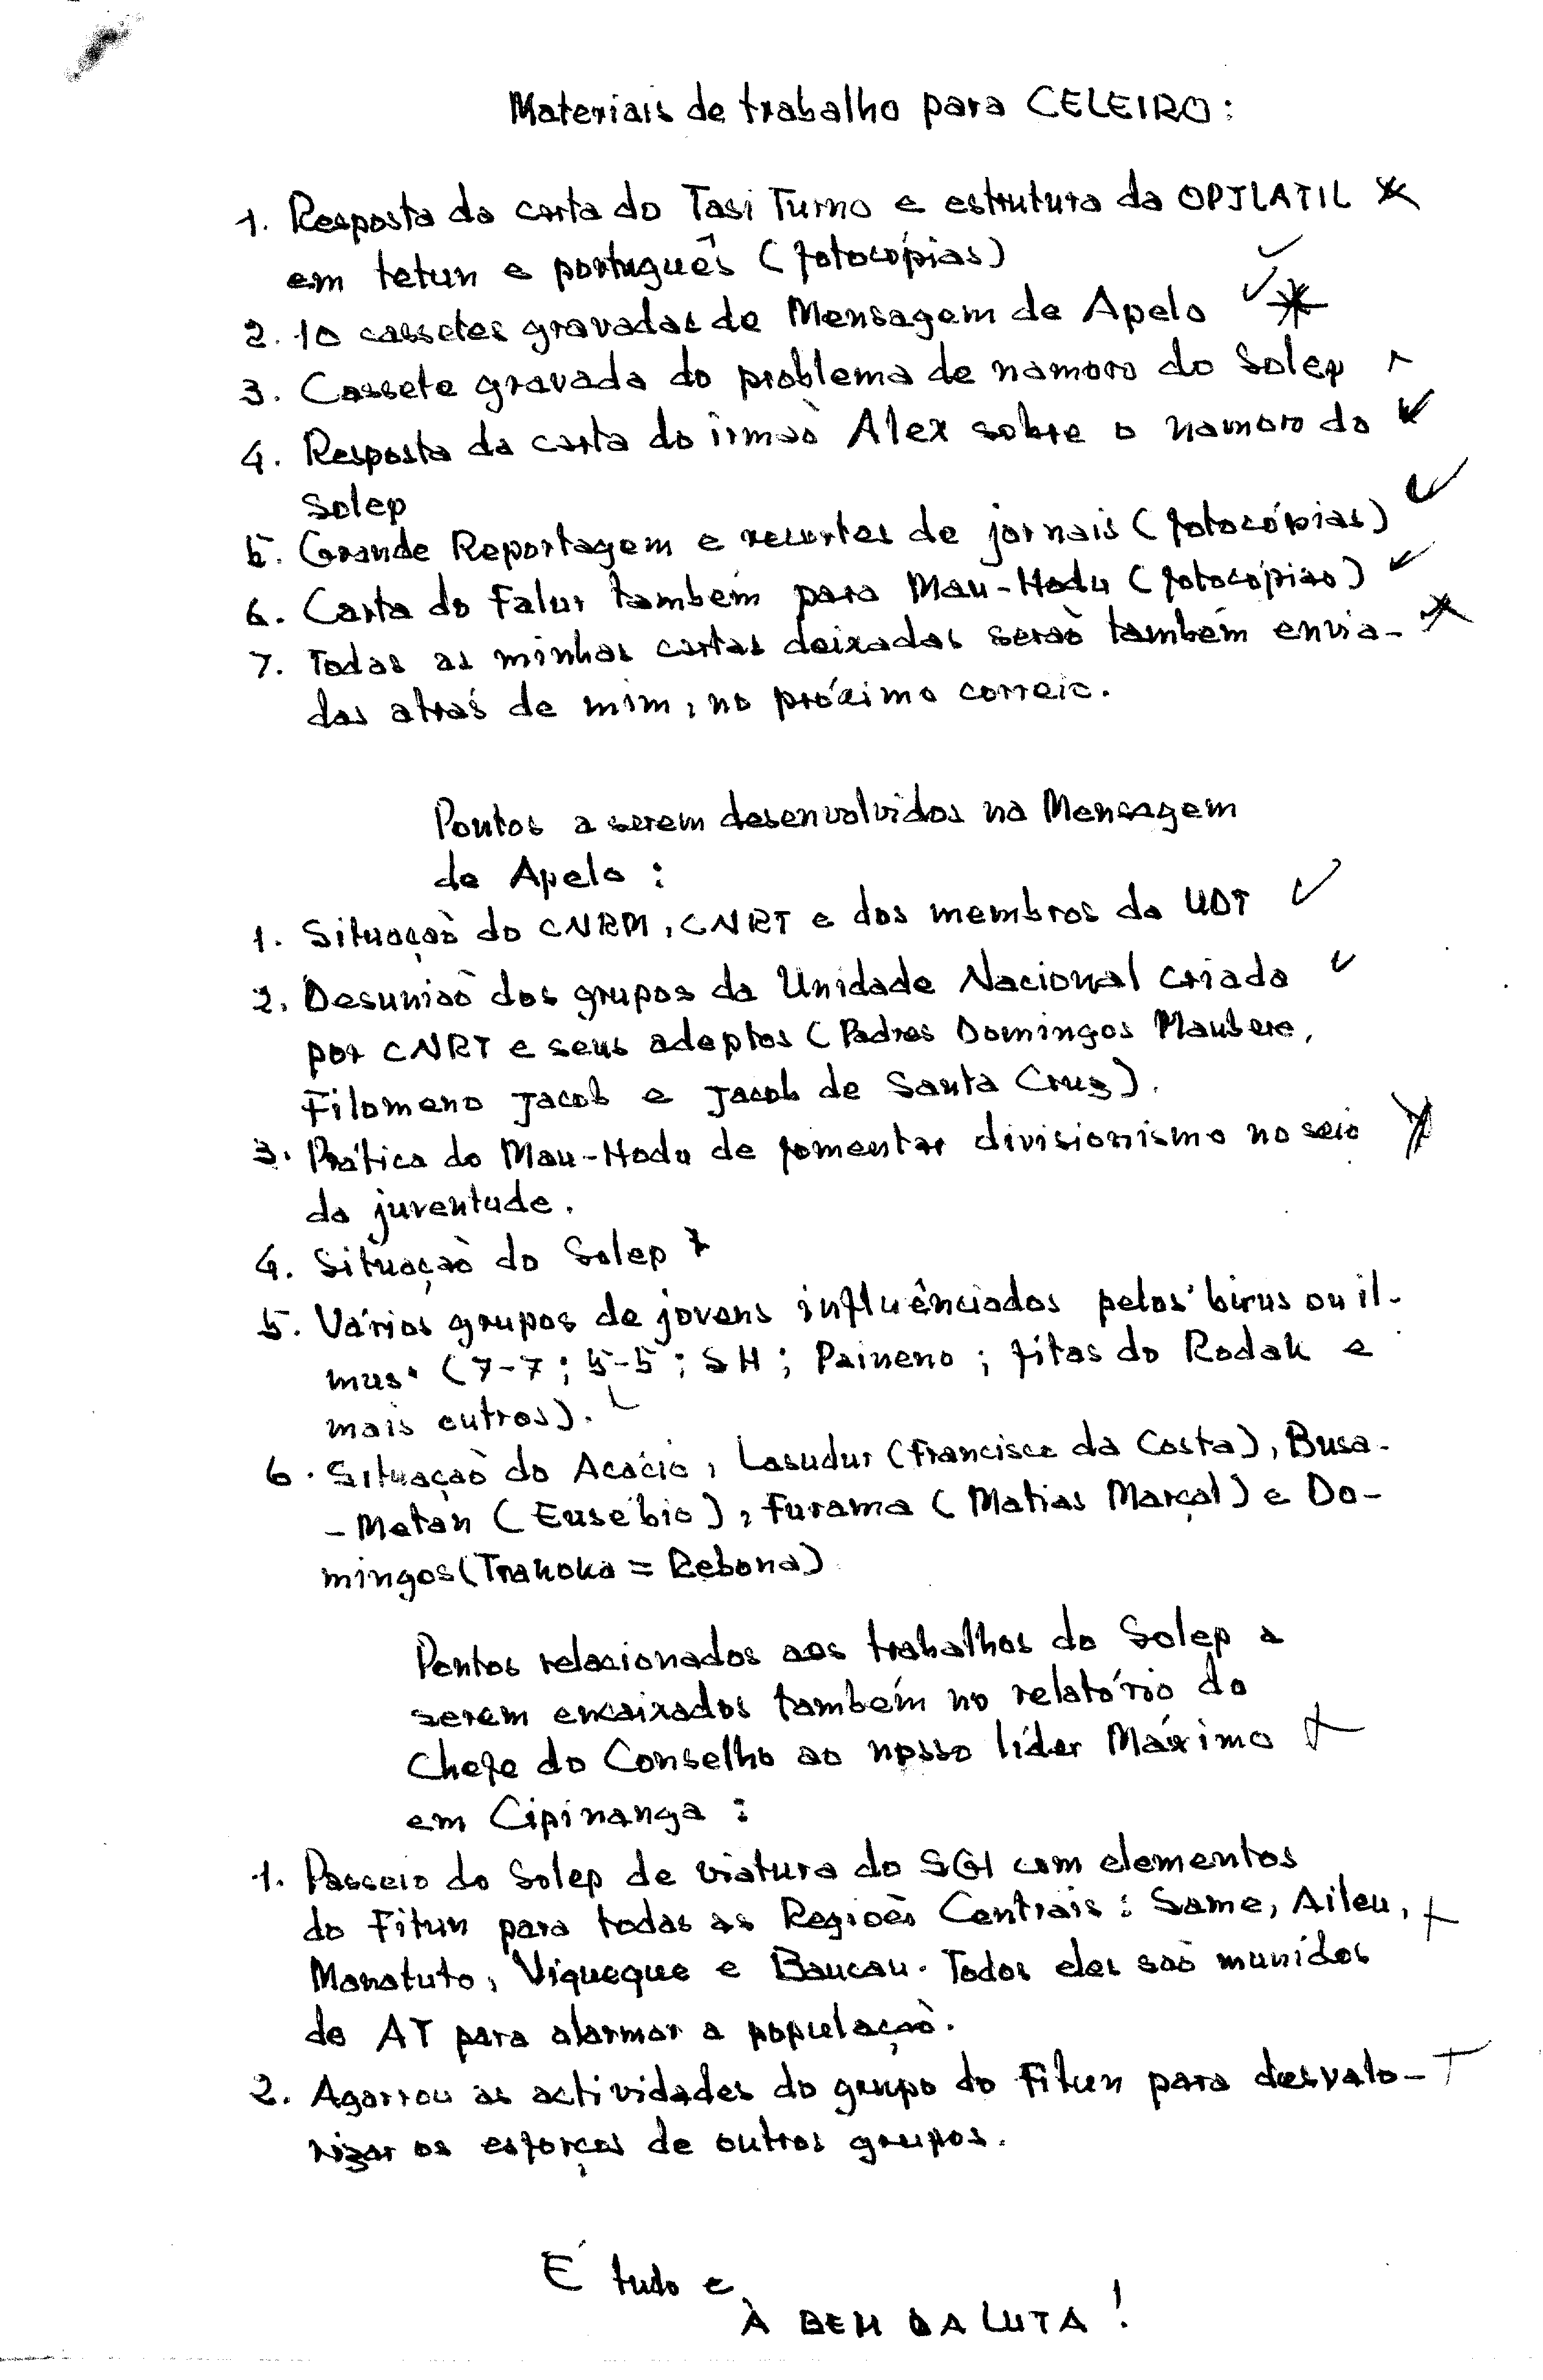 Materiais de trabalho para CELEIRO:
1. Resposta da carta do Tasi Turno e estrutura da OPJLATIL
em tetun e português (fotocópias)
2. 10 cassetes gravadas de Mensagem de Apelo
3. Cassete gravada do problema de namoro do Solep
4. Resposta da carta do irmaò Alex sobre o namoro do
Solep
5. Grande Reportagem e recortes de jornais (fotocópias)
6. Carta do Falur também para Mau-Hodu (fotocópias)
7. Todas as minhas cartas deixadas seraò também envia-
das atrás de mim, no próximo correio.
Pontos a serem desenvolvidos na Mensagem
de Apelo :
1. Situaçaò do CNRM, CNRT e dos membros da UDT
2. Desuniaò dos grupos da Unidade Nacional criada
por CNRT e seus adeptos (Padres Domingos Maubere,
Filomeno Jacob e Jacob de Santa Cruz).
3. Prática do Mau-Hodu de fomentar divisionismo no seio
da juventude.
4. Situaçaò do Solep
5. Vários grupos de jovens influênciados pelos birus ou il-
mus. (7-7; 5-5; SH; Paineno; fitas do Rodak e
mais outros).
6. Situaçaò do Acácio, Lasudur (Francisco da Costa), Busa-
-Metan (Eusébio), Furama (Matias Marçal) e Do-
mingos (Trakoka = Rebona)
Pontos relacionados aos trabalhos do Solep a
serem encaixados também no relatório do
Chefe do Conselho ao nosso líder Máximo
em Cipinanga :
1. Passeio do Solep de viatura do SGI com elementos
do Fitun para todas as Regioès Centrais : Same, Aileu,
Manatuto, Viqueque e Baucau. Todos eles saò munidos
de AT para alarmar a populaçaò.
2. Agarrou as actividades do grupo do Fitun para desvalo-
rizar os esforços de outros grupos.
É tudo e
À BEM DA LUTA !